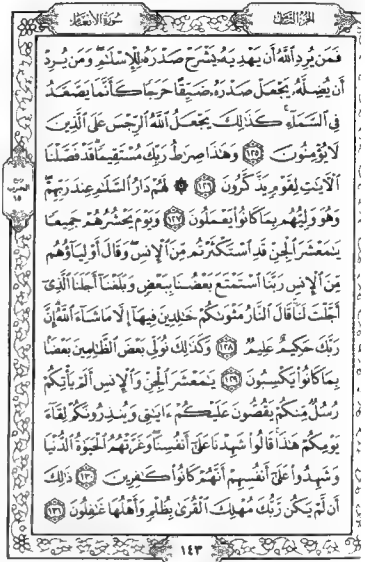 الجزء الثامن
سورة الأنعام
فَمَن يُرِدِ ٱللَّهُ أَن يَهْدِيَهُۥ يَشْرَحْ صَدْرَهُۥ لِلْإِسْلَٰمِ ۖ وَمَن يُرِدْ
أَن يُضِلَّهُۥ يَجْعَلْ صَدْرَهُۥ ضَيِّقًا حَرَجًا كَأَنَّمَا يَصَّعَّدُ
فِى ٱلسَّمَآءِ ۚ كَذَٰلِكَ يَجْعَلُ ٱللَّهُ ٱلرِّجْسَ عَلَى ٱلَّذِينَ
لَا يُؤْمِنُونَ ١٢٥ وَهَٰذَا صِرَٰطُ رَبِّكَ مُسْتَقِيمًا ۗ قَدْ فَصَّلْنَا
ٱلْءَايَٰتِ لِقَوْمٍ يَذَّكَّرُونَ ١٢٦ ۞ لَهُمْ دَارُ ٱلسَّلَٰمِ عِندَ رَبِّهِمْ ۖ
وَهُوَ وَلِيُّهُم بِمَا كَانُوا۟ يَعْمَلُونَ ١٢٧ وَيَوْمَ يَحْشُرُهُمْ جَمِيعًا
يَٰمَعْشَرَ ٱلْجِنِّ قَدِ ٱسْتَكْثَرْتُم مِّنَ ٱلْإِنسِ ۖ وَقَالَ أَوْلِيَآؤُهُم
مِّنَ ٱلْإِنسِ رَبَّنَا ٱسْتَمْتَعَ بَعْضُنَا بِبَعْضٍ وَبَلَغْنَآ أَجَلَنَا ٱلَّذِىٓ
أَجَّلْتَ لَنَا ۚ قَالَ ٱلنَّارُ مَثْوَىٰكُمْ خَٰلِدِينَ فِيهَآ إِلَّا مَا شَآءَ ٱللَّهُ ۗ إِنَّ
رَبَّكَ حَكِيمٌ عَلِيمٌ ١٢٨ وَكَذَٰلِكَ نُوَلِّى بَعْضَ ٱلظَّٰلِمِينَ بَعْضًۢا
بِمَا كَانُوا۟ يَكْسِبُونَ ١٢٩ يَٰمَعْشَرَ ٱلْجِنِّ وَٱلْإِنسِ أَلَمْ يَأْتِكُمْ
رُسُلٌ مِّنكُمْ يَقُصُّونَ عَلَيْكُمْ ءَايَٰتِى وَيُنذِرُونَكُمْ لِقَآءَ
يَوْمِكُمْ هَٰذَا ۚ قَالُوا۟ شَهِدْنَا عَلَىٰٓ أَنفُسِنَا ۖ وَغَرَّتْهُمُ ٱلْحَيَوٰةُ ٱلدُّنْيَا
وَشَهِدُوا۟ عَلَىٰٓ أَنفُسِهِمْ أَنَّهُمْ كَانُوا۟ كَٰفِرِينَ ١٣٠ ذَٰلِكَ
أَن لَّمْ يَكُن رَّبُّكَ مُهْلِكَ ٱلْقُرَىٰ بِظُلْمٍ وَأَهْلُهَا غَٰفِلُونَ ١٣١
ربع
الحزب
١٥
١٤٣